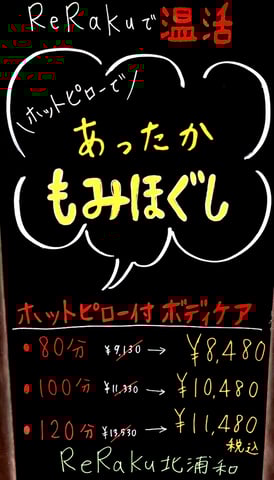 ReRakuで温活
\ホットピローで/
あったか
もみほぐし
ホットピロー付 ボディケア
• 80分 ¥9,130 → ¥8,480
• 100分 ¥11,330 → ¥10,480
• 120分 ¥13,530 → ¥11,480
税込
ReRaku北浦和